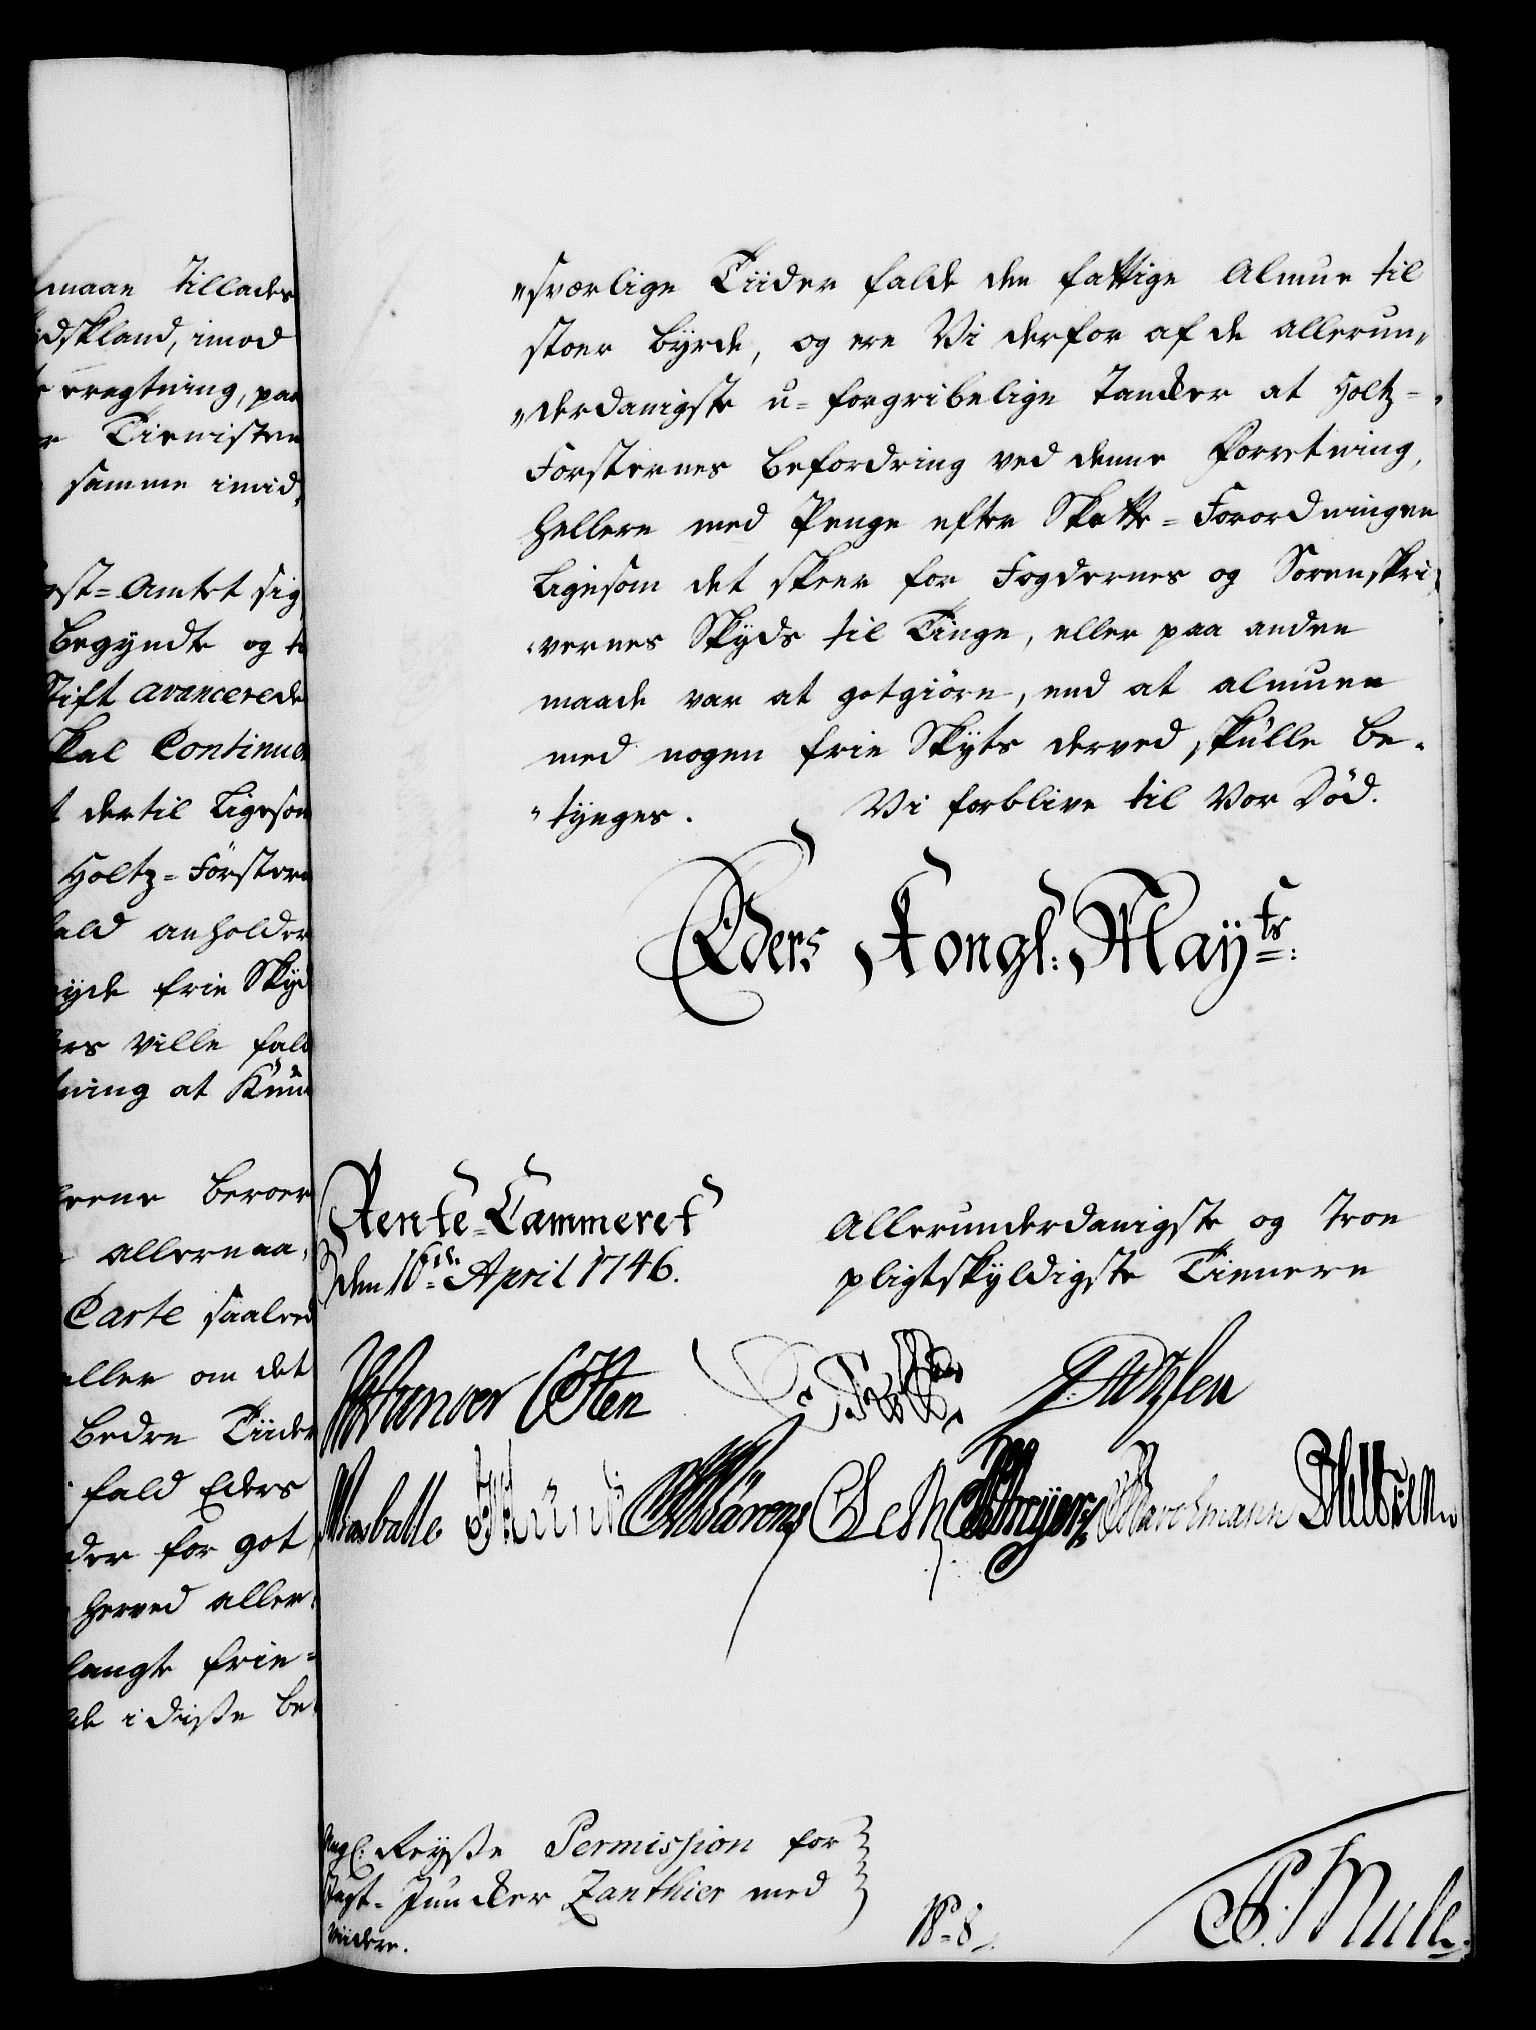 maan tillades
dskland, imod
rregtning, paa
Tienisten
samme imid,
st-Amtet sig
begyndte og
Stift avancerede
skal Continuer
dertil ligesom
Holtz-Förstere
fald anholder
nyde frie Skyd
ville fald
ning at
beroer
allernaa,
Carte saaled
eller om det
bedre Tiider
fald Eders
der for got
herved aller,
langte frie=
de i disse be,
"sværlige Tiider falde den fattige Almue til
stoer byrde, og ere Vi derfor af de allerun,,
"derdanigste u=forgribelige Tancker at Holtz=
Forsternes befordring ved denne Forretning,
hellere med Penge efter Skatte=Forordningen
ligesom det skeer for Fogdernes og Sorenskri
"vernes Skyds til Tinge, eller paa anden
maade var at gotgiöre, end at almuen
med nogen frie Skyts derved skulle be,
"tynges. Vi forblive til Vor Död.
Eders Kongl: Mayts:
Rente=Cammeret
den 16de April 1746.
Allerunderdanigste og troe
pligtskyldigste Tienere
Osten
Wasballe Leth Marchmann
Reysse Permission for
Jagt-Juncker Zanthier med
viidere.
No 8.
P: Mule